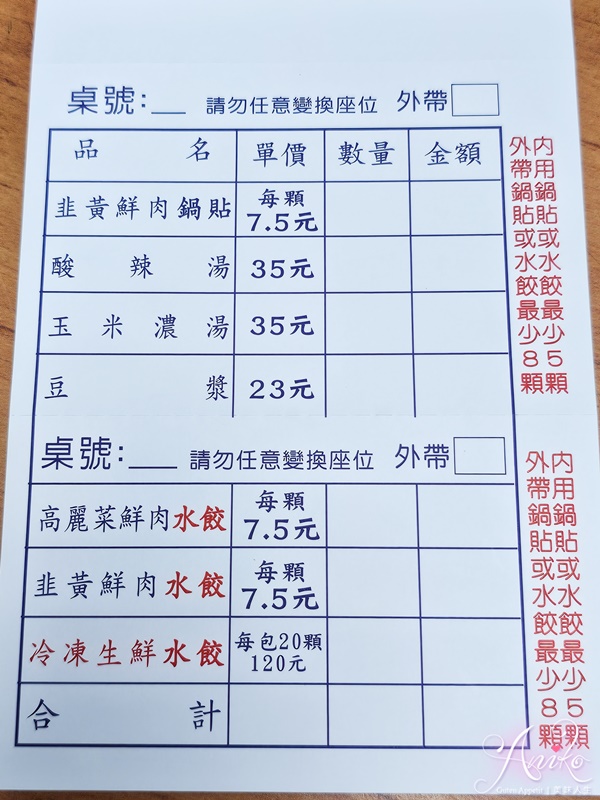 桌號:__ 請勿任意變換座位 外帶
品名 單價 數量 金額
韭黃鮮肉鍋貼 每顆7.5元
酸辣湯 35元
玉米濃湯 35元
豆漿 23元
內用鍋貼或水餃最少5顆
外帶鍋貼或水餃最少8顆
桌號:__ 請勿任意變換座位 外帶
高麗菜鮮肉水餃 每顆7.5元
韭黃鮮肉水餃 每顆7.5元
冷凍生鮮水餃 每包20顆120元
合計
內用鍋貼或水餃最少5顆
外帶鍋貼或水餃最少8顆
Aniko